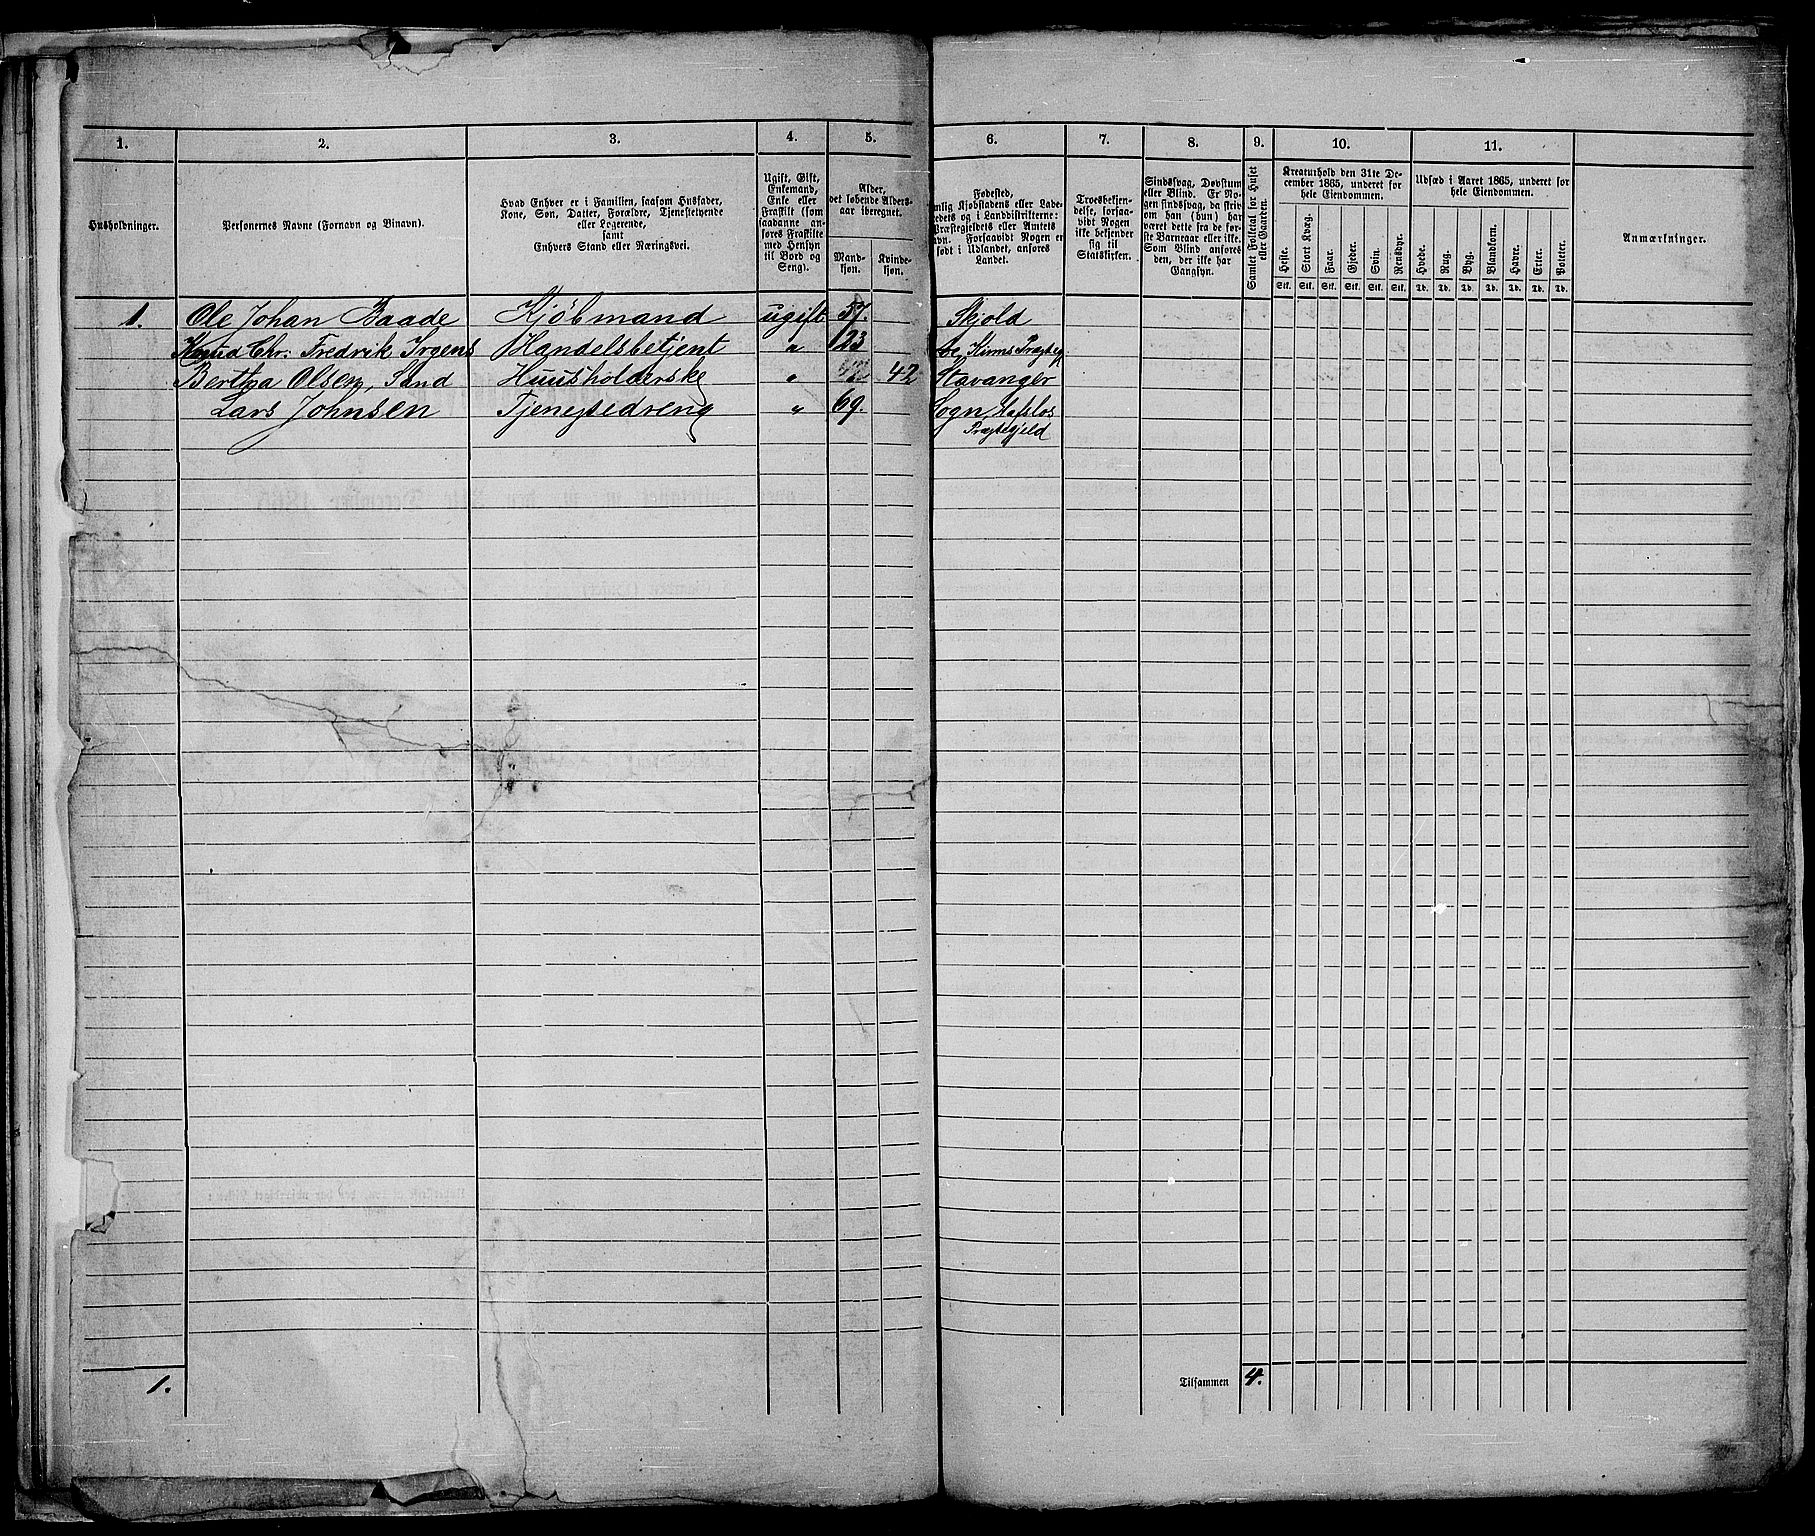 1.
2.
3.
4.
5.
6.
7.
8.
9.
10.
11.
Husholdninger.
Personernes Navne (Fornavn og Binavn).
Hvad Enhver er i Familien, saasom Husfader,
Kone, Søn, Datter, Forældre, Tjenestetyende
eller Logerende,
samt
Enhvers Stand eller Næringsvei.
Ugift, Gift,
Enkemand,
Enke eller
Fraskilt (som
saadanne an-
føres Fraskilte
med Hensyn
til Bord og
Seng).
Alder,
det løbende Alders-
aar iberegnet.
Mand-
kjøn.
Kvinde-
kjøn.
Fødested,
Kjøbstadens eller Lade-
stedets og i Landdistrikterne:
Præstegjeldets eller Amtets
Navn. Forsaavidt Nogen er
født i Udlandet, anføres
Landet.
Troesbekjen-
delse, forsaa-
vidt Nogen
ikke bekjender
sig til
Statskirken.
Sindssvag, Døvstum
eller Blind. Er No-
gen sindssvag, da skriv
om han (hun) har
været dette fra de før-
ste Barneaar eller ikke.
Som Blind anføres
den, der ikke har
Gangsyn.
Samlet Folketal for Huset
eller Gaarden.
Kreaturhold den 31te De-
cember 1865, underet for
hele Eiendommen.
Heste.
Stort Kvæg.
Faar.
Gjeder.
Svin.
Rensdyr.
Stk. Stk. Stk. Stk. Stk. Stk.
Udsæd i Aaret 1865, underet for
hele Eiendommen.
Hvede.
Rug.
Byg.
Blandkorn.
Havre.
Erter.
Poteter.
Td. Td. Td. Td. Td. Td. Td.
Anmærkninger.
1. Ole Johan Baade Kjöbmand ugift 57. Skjold
Knud Chr: Fredrik Irgens Handelsbetjent " 23 Kinns Præsteg
Bertha Olsen, Sand Huusholderske " 42 Stavanger
Lars Johnsen Tjenestedreng " 69. Sogn, Hafslos
Præstegjeld
1. Tilsammen 4.